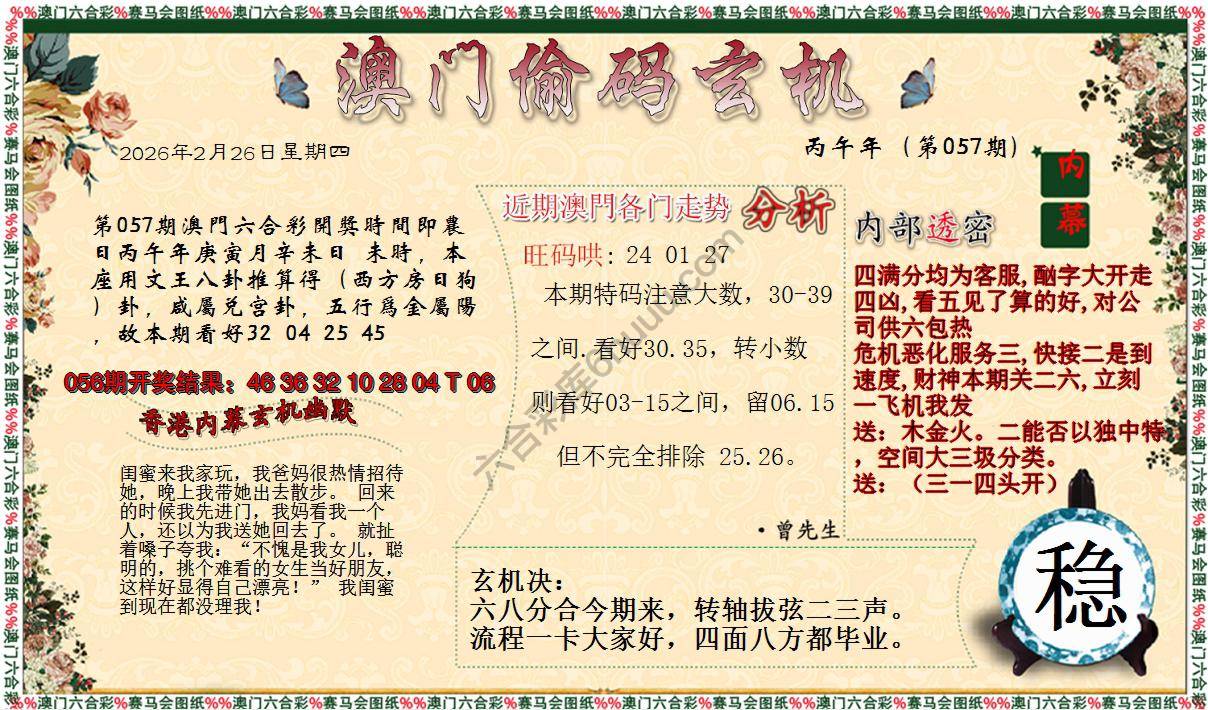 %%澳门六合彩%赛马会图纸%%澳门六合彩%赛马会图纸%%澳门六合彩%赛马会图纸%%澳门六合彩%赛马会图纸%%澳门六合彩%赛马会图纸%%澳门六合彩%赛马会图纸%%
澳门偷码玄机
2026年2月26日星期四
丙午年（第057期）
内幕
第057期澳門六合彩開獎時間即農
日丙午年庚寅月辛未日 未時，本
座用文王八卦推算得（西方房日狗
）卦，咸屬兑宫卦，五行爲金屬陽
，故本期看好32 04 25 45
056期开奖结果：46 36 32 10 28 04 T 06
香港内幕玄机幽默
闺蜜来我家玩，我爸妈很热情招待
她，晚上我带她出去散步。 回来
的时候我先进门，我妈看我一个
人，还以为我送她回去了。 就扯
着嗓子夸我：“不愧是我女儿，聪
明的，挑个难看的女生当好朋友，
这样好显得自己漂亮！” 我闺蜜
到现在都没理我！
近期澳門各门走势 分析
旺码哄: 24 01 27
本期特码注意大数，30-39
之间.看好30.35，转小数
则看好03-15之间，留06.15
但不完全排除 25.26。
·曾先生
内部透密
四满分均为客服,酗字大开走
四凶,看五见了算的好,对公
司供六包热
危机恶化服务三,快接二是到
速度,财神本期关二六,立刻
一飞机我发
送：木金火。二能否以独中特
，空间大三圾分类。
送：（三一四头开）
玄机决：
六八分合今期来，转轴拔弦二三声。
流程一卡大家好，四面八方都毕业。
稳